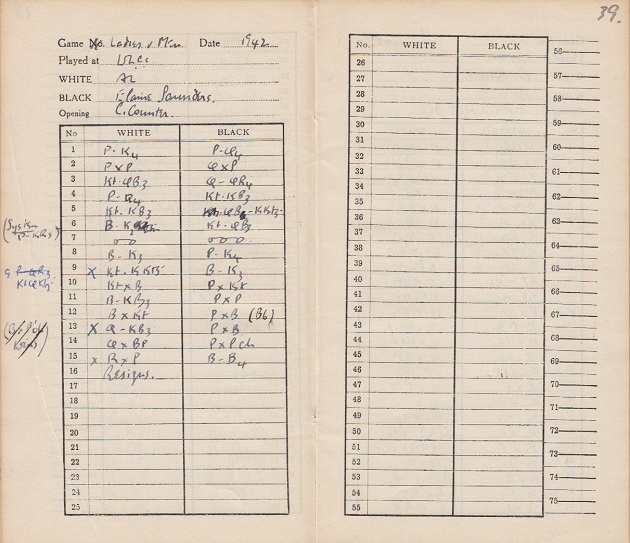 39.
Game No. Ladies v Men Date 1942
Played at
WHITE
BLACK Elaine Saunders.
Opening C. Counter.
No WHITE BLACK
1 P-K4 P-Q4
2 P x P Q x P
3 Kt-QB3 Q-QR4
4 P-Q4 Kt-KB3
5 Kt-KB3
6 Kt-QB3
7 o-o o-o-o
8 B-K3 P-K4
9 x Kt-KKt5 B-K3
10 Kt x B P x Kt
11 B-KB3 P x P
12 B x Kt P x B (B6)
13 x Q-KB3 P x B
14 Q x BP P x P ch
15 x R x P B-B4
16 Resigns.
17
18
19
20
21
22
23
24
25
No. WHITE BLACK
26
27
28
29
30
31
32
33
34
35
36
37
38
39
40
41
42
43
44
45
46
47
48
49
50
51
52
53
54
55
56
57
58
59
60
61
62
63
64
65
66
67
68
69
70
71
72
73
74
75